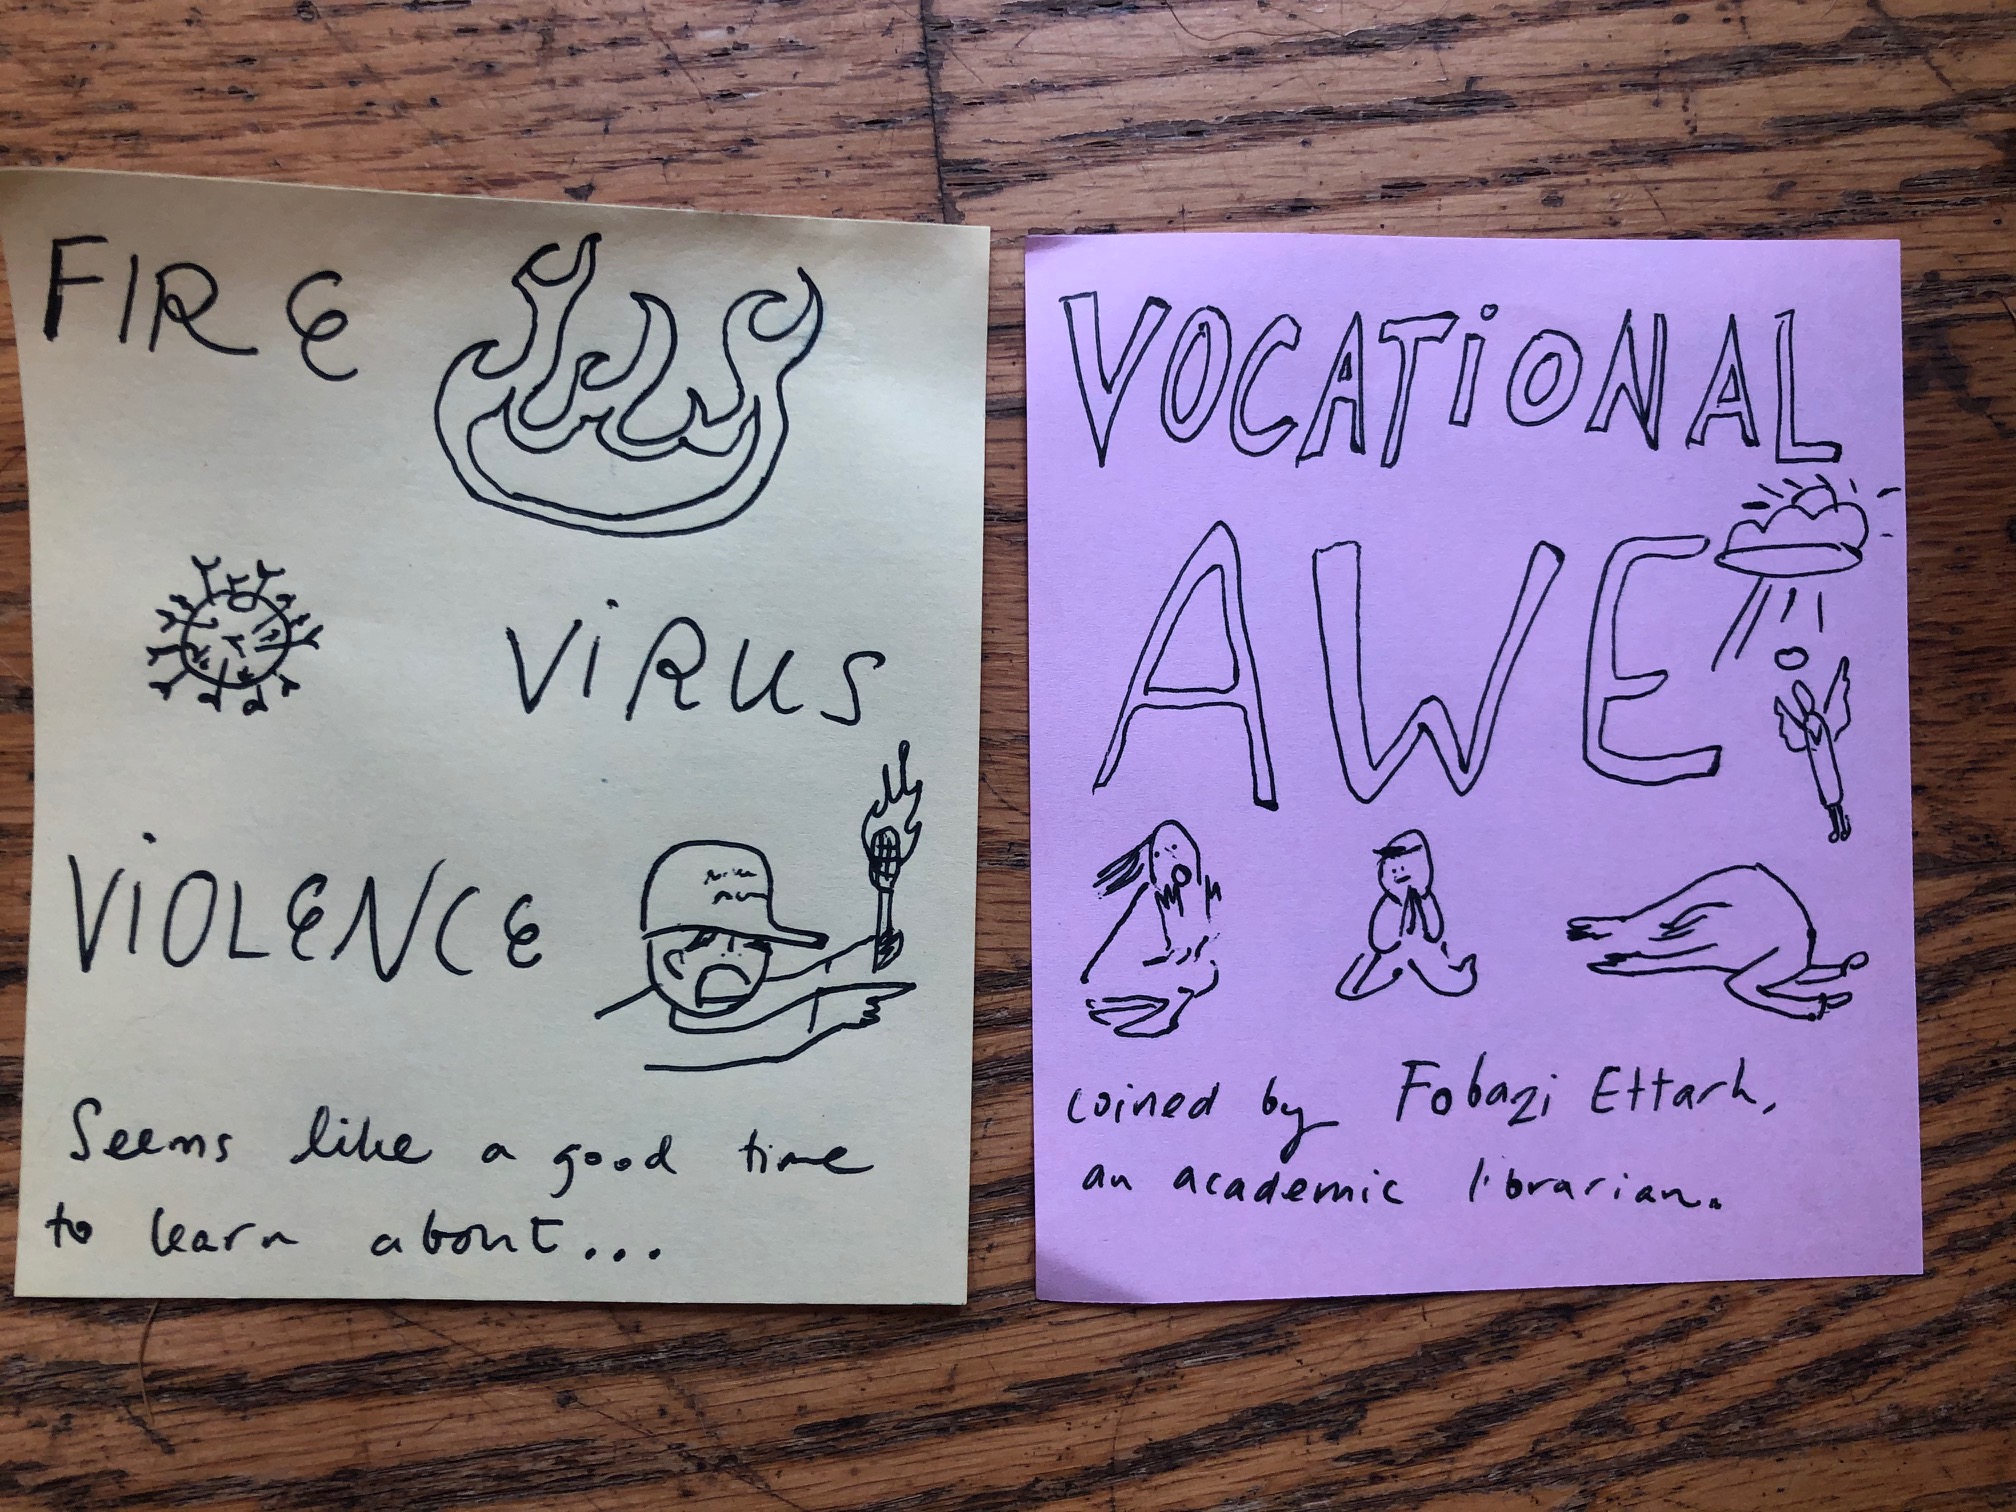 FIRE
VIRUS
VIOLENCE
Seems like a good time
to learn about...
VOCATIONAL
AWE
coined by Fobazi Ettarh,
an academic librarian.